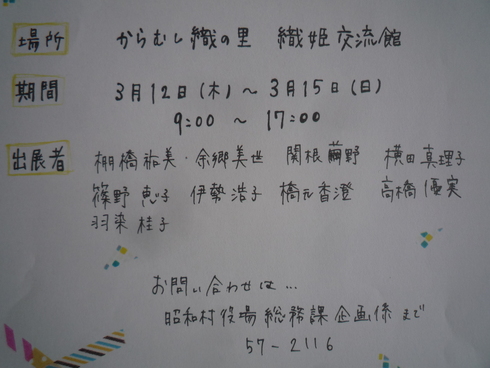 場所 からむし織の里 織姫交流館
期間 3月12日(木)～3月15日(日)
9:00 ～ 17:00
出展者 棚橋祐美・余郷美世 関根繭野 横田真理子
篠野恵子 伊勢浩子 橋元香澄 高橋優実
羽染桂子
お問い合わせは…
昭和村役場総務課企画係まで
57-2116